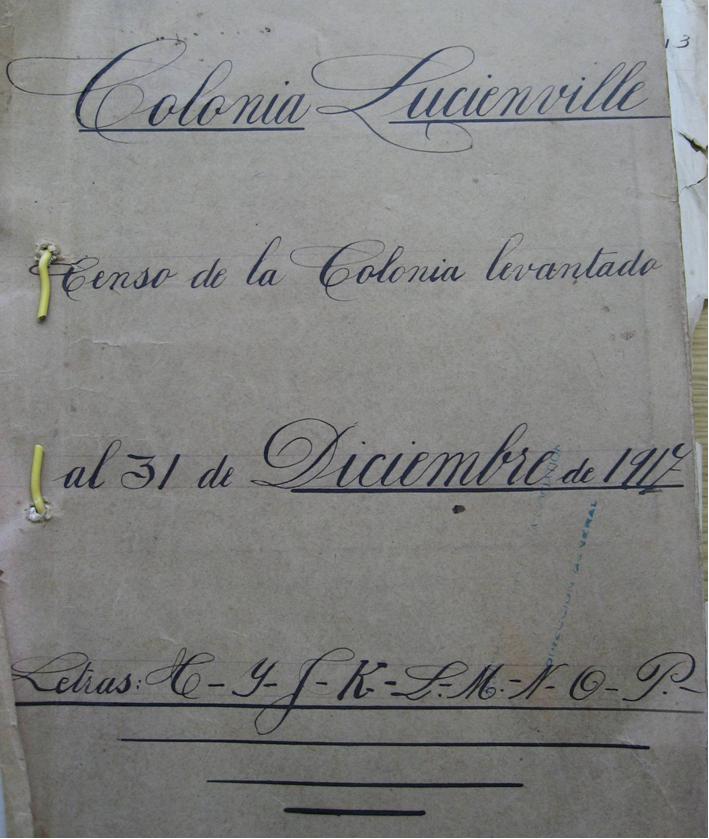 13
Colonia Lucienville
Censo de la Colonia levantado
al 31 de Diciembre de 1917
DIRECCION GENERAL
Letras: H - Y - J - K - L - M. - N - O - P. -